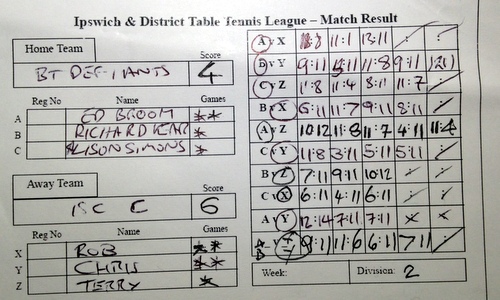 Ipswich & District Table Tennis League – Match Result
Home Team
Score
BT DEFIANTS 4
Reg No Name Games
A ED BROOM **
B RICHARD KERR *
C ALISON SIMONS *
Away Team
Score
ISC C 6
Reg No Name Games
X ROB **
Y CHRIS **
Z TERRY *
A v X 11:1 13:11
B v Y 9:11 11:8 9:11
C v Z 11:8 11:4 8:11 11:7
B v X 6:11 11:7 9:11 8:11
A v Z 10:12 11:8 11:7 4:11 11:4
C v Y 11:8 3:11 5:11 5:11
B v Z 7:11 9:11 10:12
C v X 6:11 4:11 6:11
A v Y 12:14 7:11 7:11 x x
9:11 11:6 6:11 7:11
Week: Division: 2